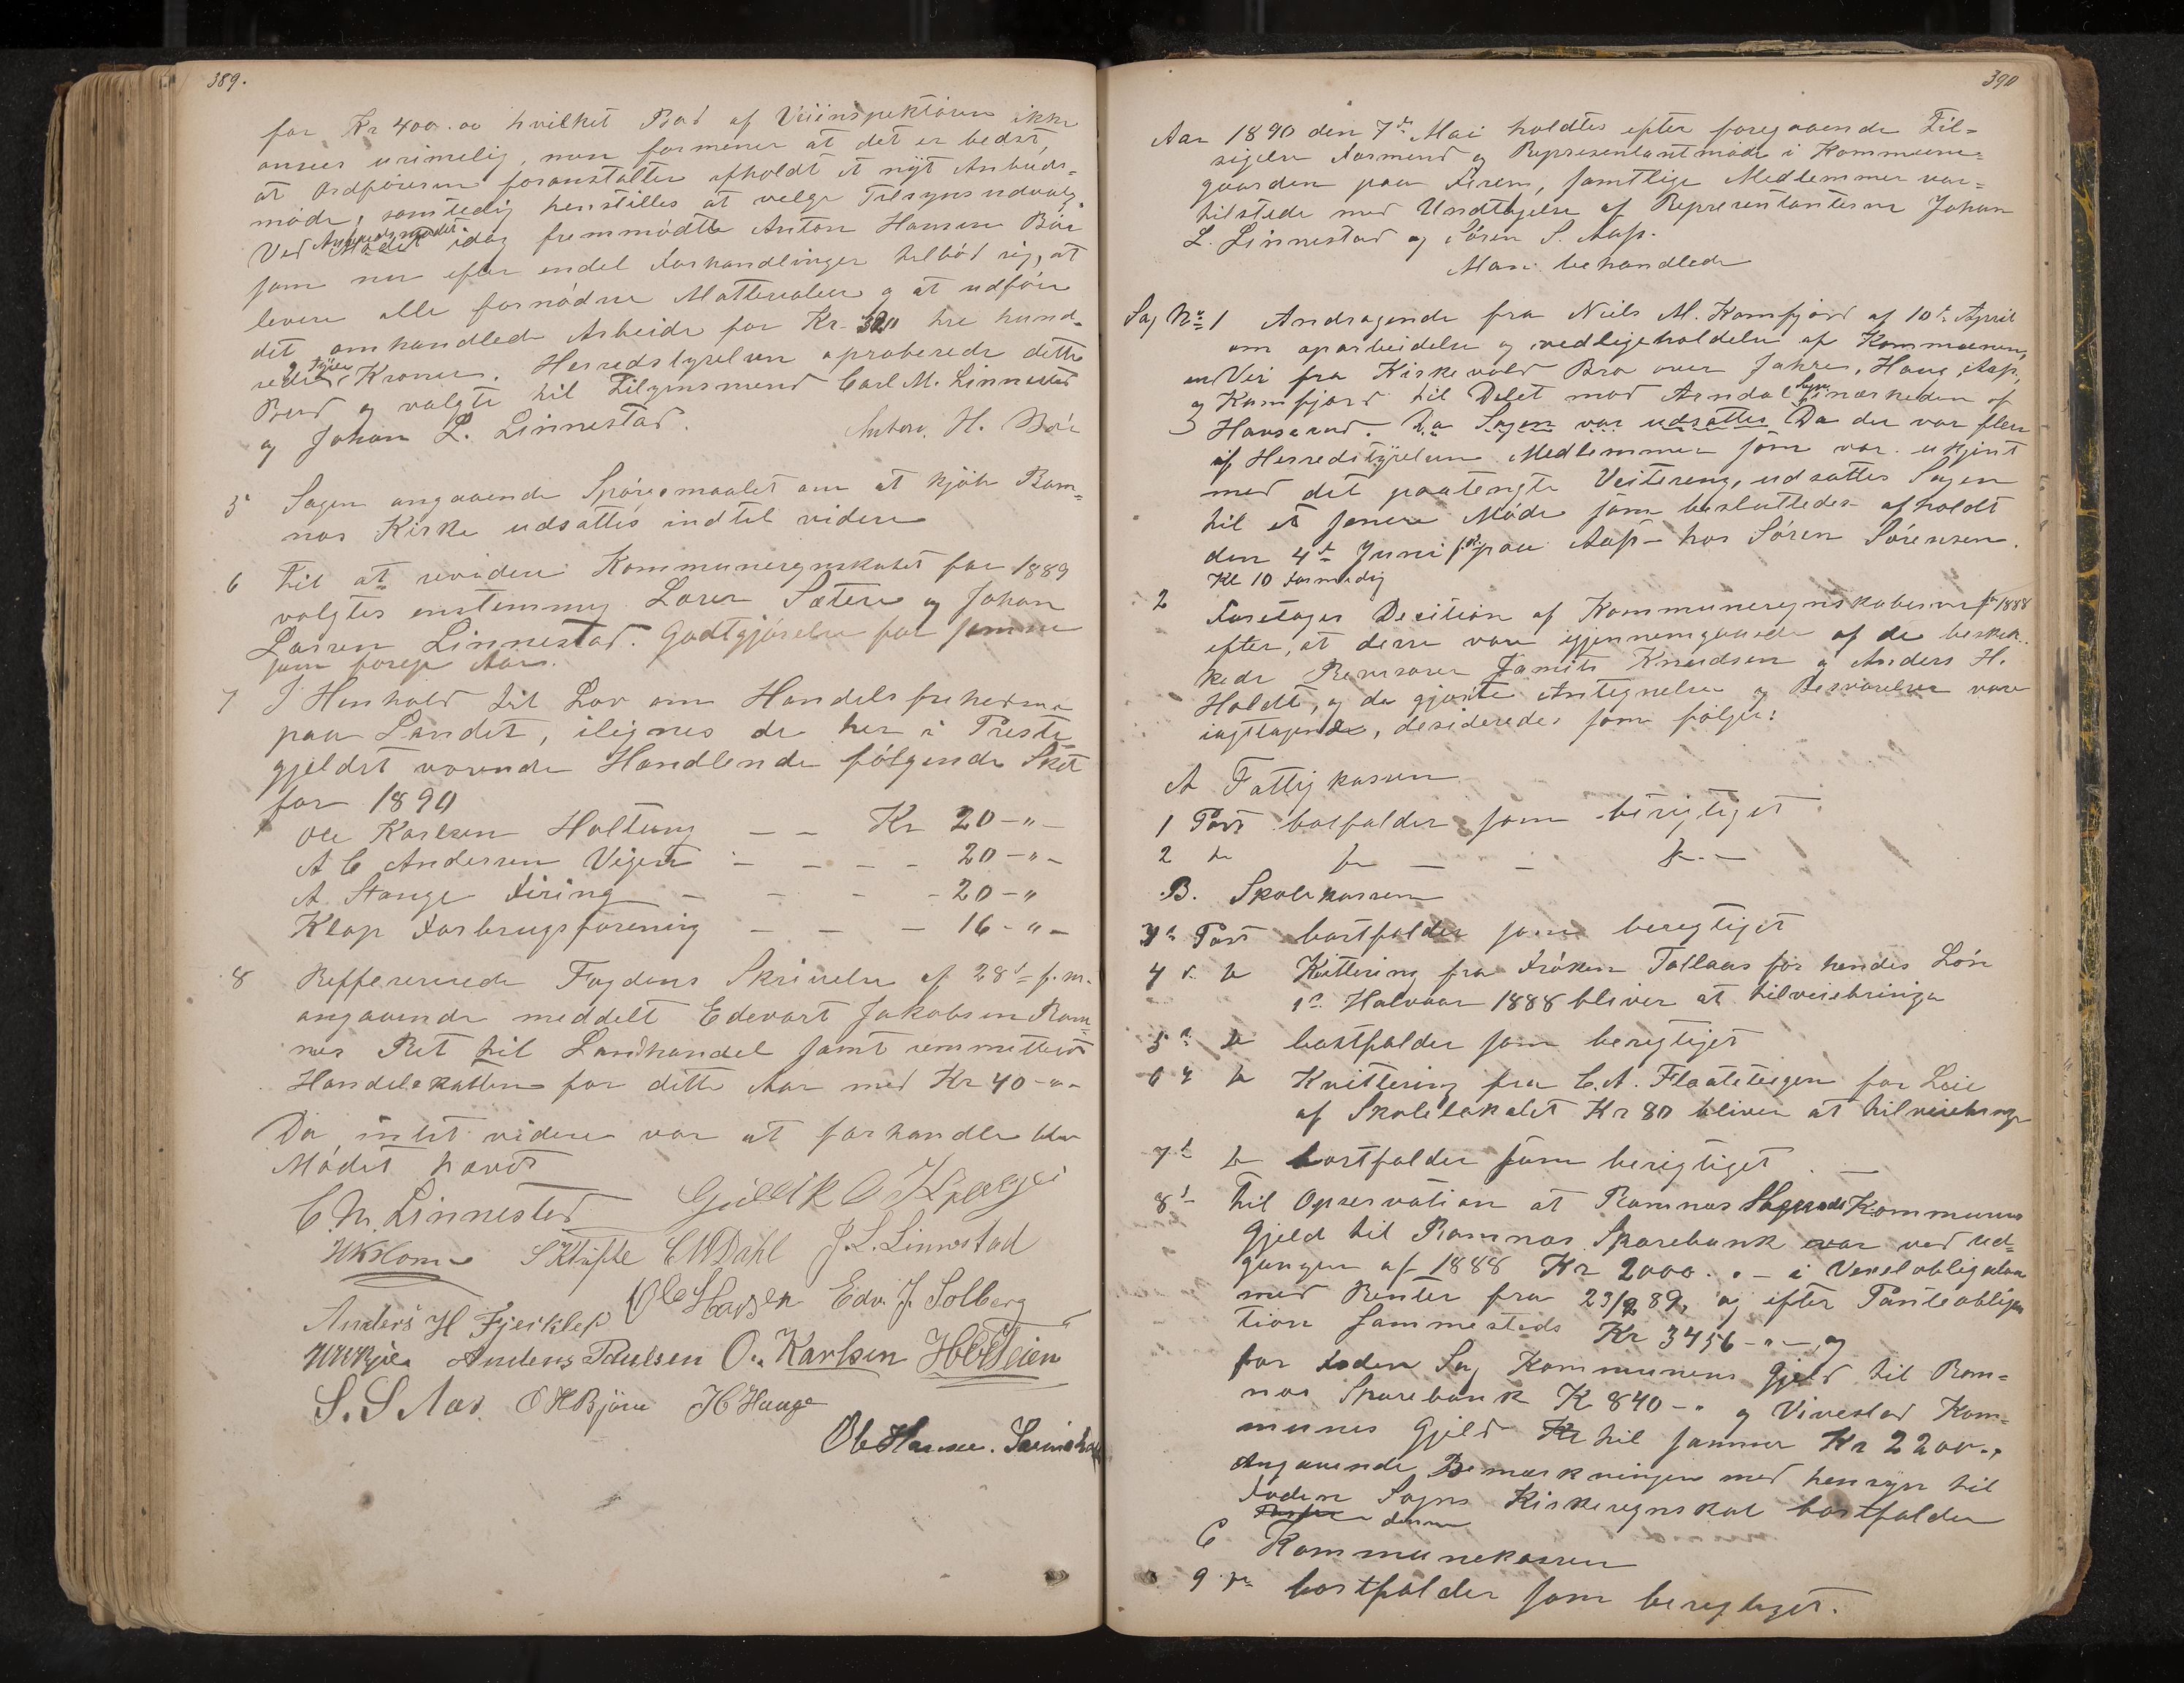 389.
for Kr 400.00 hvilket Bud af Veiinspektøren ikke
ansees urimelig, men formener at det er bedst,
at Ordføreren foranstalter afholdt et nyt Anbuds-
møde, samtidig henstilles at velge Tilsynsudvalg.
Ved Anbudsmødet idag fremmødte Anton Hansen Bøe
som nu efter endel Forhandlinger tilbød sig, at
levere alle fornødne Matterialier og at udføre
det omhandlede Arbeide for Kr. 320 tre hund-
rede og tyve Kroner. Herredstyrelsen aproberede dette
Bud og valgte til Tilsynsmend Carl M. Linnestad
og Johan L. Linnestad. Anton H. Bøe
5 Sagen angaaende Spørgsmaalet om at kjøbe Ram-
nes Kirke udsattes indtil videre
6 Til at revidere Kommuneregnskabet for 1889
valgtes enstemmig Lars Sætere og Johan
Larsen Linnestad. Godtgjørelse for samme
som forige Aar.
7 I Henhold til Lov om Handelsfriheden
paa Landet, ilignes de her i Preste-
gjeldet værende Handlende følgende Skat
for 1890
Ole Karlsen Holtung — — Kr 20-"-
A C Andersen Vegert — — — — 20-"-
A. Stange Firing — — — — 20-"
Klop Forbrugsforening — — — 16-"-
8 Reffererede Fogdens Skrivelse af 28de f. m.
angaaende meddelt Edevart Jakobsen Ram-
nes Ret til Landhandel samt remitterer
Handelskatten for dette Aar med Kr 40-"-
Da intet videre var at forhandle blev
Mødet hævet
C. M. Linnestad
S Klufte C M Dahl J. L. Linnestad
Anders H Fjerkleß Ole Hansen Edv. J. Solberg
Anders Paulsen O. Karlsen
S. S Aas O H Bjørue H Hauge
Ole Hansen
390
Aar 1890 den 7de Mai holdtes efter foregaaende Til-
sigelse Formend og Representantmøde i Kommune-
gaarden paa Firem, samtlige Medlemmer var-
tilstede med Undtagelse af Representanterne Johan
L. Linnestad og Søren S. Aaß.
Man behandlede
Sag No 1 Andragende fra Niels M. Kamfjord af 10de April
om oparbeidelse og vedligeholdelse af Kommunen,
en Vei fra Kirkevold Bro over Jahre, Haug, Aaß,
og Kamfjord til Delet mod Arendal Sogn i nærheden af
Hansrud. Da Sagen var udsattes Da der var flere
af Herredstyrelsens Medlemmer som var ukjent
med det paatengte Veitereng, udsattes Sagen
til et senere Møde som besluttedes afholdt
den 4de Juni paa Aaß – hos Søren Sørensen.
Kl 10 Formidag
2 Foretages Decition af Kommuneregnskaberne for 1888
efter, at disse vare igjennemgaaede af de beskik-
kede Revisorer Jamits Knudsen og Anders H.
Holdt, og de gjorte Antegnelser og Besvarelser vare
iagttagende, desideredes som følger:
A Fattigkassen
1 Post bortfalder som berigtiget
2 de de — — do —
B. Skolekassen
3de Post bortfalder som berigtiget
4 de Kvittering fra Frøken Tallaas for hendes Løn
1ste Halvaar 1888 bliver at tilveiebringe
5te de bortfalder som berigtiget
6te de Kvittering fra C. A. Flaateteigen for Leie
af Skolelokalet Kr 80 bliver at tilveiebringe
7de de bortfalder som berigtiget
8de Til Opservation at Ramnes Kommunes
Gjeld til Ramnes Sparebank var ved Ud-
gangen af 1888 Kr 2000.- i Vexelobligation
med Renter fra 23/9 89, og efter Panteobliga-
tion sammesteds Kr 3456-"- og
for Foden Sog Kommunens Gjeld til Ram-
nes Sparebank K 840-" og Vivestad Kom-
munes Gjeld til samme Kr 2200.,
Angaaende Bemærkningen med hensyn til
Foden Sogns Kirkeregnskab bortfalder
denne
C Kommunekassen
9de bortfalder som berigtiget.